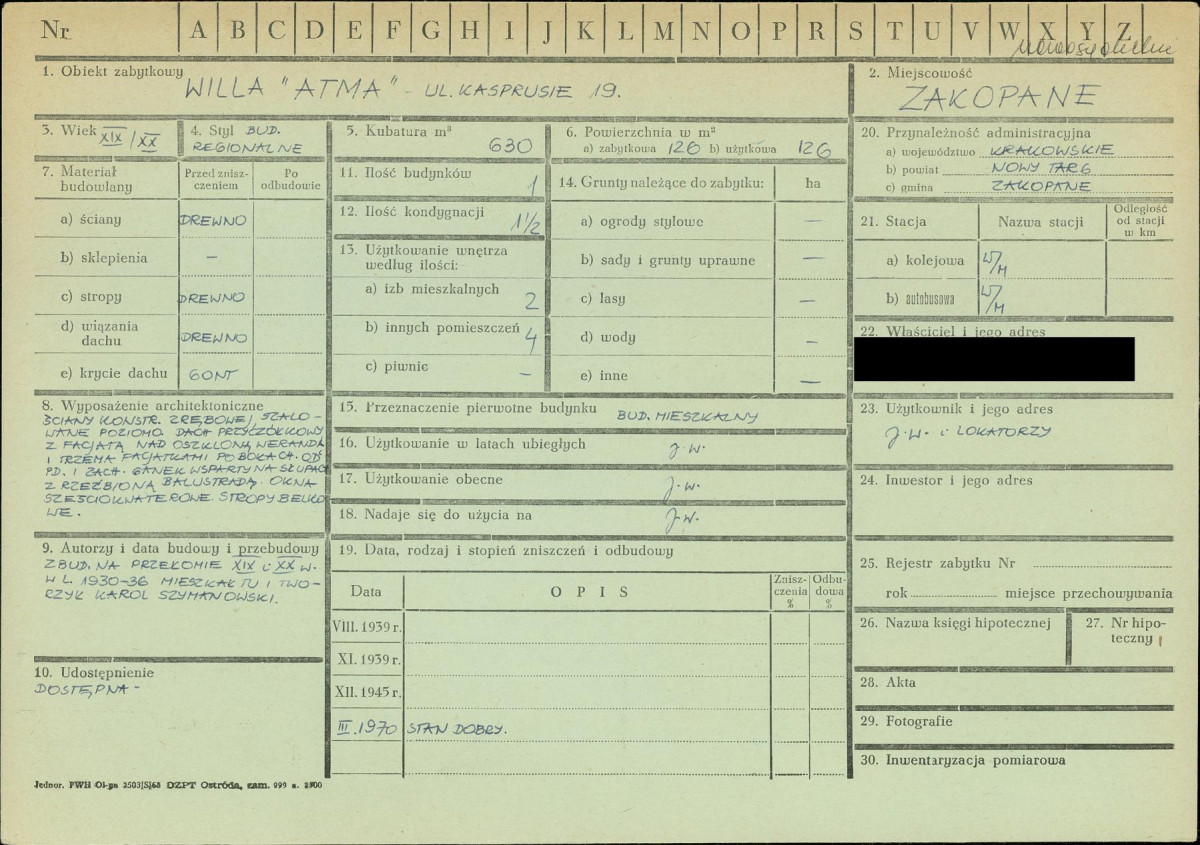 Nr A B C D E F G H I J K L M N O P R S T U V W X Y Z
1. Obiekt zabytkowy WILLA "ATMA" - UL. KASPRUSIE 19.
2. Miejscowość
ZAKOPANE
3. Wiek XIX/XX
4. Styl BUD.
REGIONALNE
5. Kubatura m³
630
6. Powierzchnia w m²
a) zabytkowa 126 b) użytkowa 126
20. Przynależność administracyjna
a) województwo KRAKOWSKIE
b) powiat NOWY TARG
c) gmina ZAKOPANE
7. Materiał
budowlany
Przed znisz-
czeniem
Po
odbudowie
a) ściany DREWNO
b) sklepienia –
c) stropy DREWNO
d) wiązania
dachu DREWNO
e) krycie dachu GONT
11. Ilość budynków 1
12. Ilość kondygnacji 1½
13. Użytkowanie wnętrza
według ilości:
a) izb mieszkalnych 2
b) innych pomieszczeń 4
c) piwnic –
14. Grunty należące do zabytku: ha
a) ogrody stylowe –
b) sady i grunty uprawne –
c) lasy –
d) wody –
e) inne –
21. Stacja Nazwa stacji
Odległość
od stacji
w km
a) kolejowa W/M
b) autobusowa W/M
22. Właściciel i jego adres
8. Wyposażenie architektoniczne
ŚCIANY KONSTR. ZRĘBOWEJ, SZALO-
WANE POZIOMO. DACH PRZYCZÓŁKOWY
Z FACJATĄ NAD OSZKLONĄ WERANDĄ
I TRZEMA FACJATKAMI PO BOKACH. OD
PD. I ZACH. GANEK WSPARTY NA SŁUPACH
Z RZEŹBIONĄ BALUSTRADĄ. OKNA
SZEŚCIOKWATEROWE. STROPY BELKO
WE.
15. Przeznaczenie pierwotne budynku BUD. MIESZKALNY
16. Użytkowanie w latach ubiegłych J.W.
17. Użytkowanie obecne J.W.
18. Nadaje się do użycia na J.W.
23. Użytkownik i jego adres
J.W. i LOKATORZY
24. Inwestor i jego adres
9. Autorzy i data budowy i przebudowy
ZBUD. NA PRZEŁOMIE XIX i XX W.
W L. 1930-36 MIESZKAŁ TU I TWO-
RZYŁ KAROL SZYMANOWSKI.
10. Udostępnienie
DOSTĘPNA -
19. Data, rodzaj i stopień zniszczeń i odbudowy
Data OPIS
Znisz-
czenia
%
Odbu-
dowa
%
VIII. 1939 r.
XI. 1939 r.
XII. 1945 r.
III. 1970 STAN DOBRY.
25. Rejestr zabytku Nr
rok miejsce przechowywania
26. Nazwa księgi hipotecznej
27. Nr hipo-
teczny
28. Akta
29. Fotografie
30. Inwentaryzacja pomiarowa
Jednor. PWH Ol-pn 2503/S/68 DZPT Ostróda, zam. 999 n. 2500